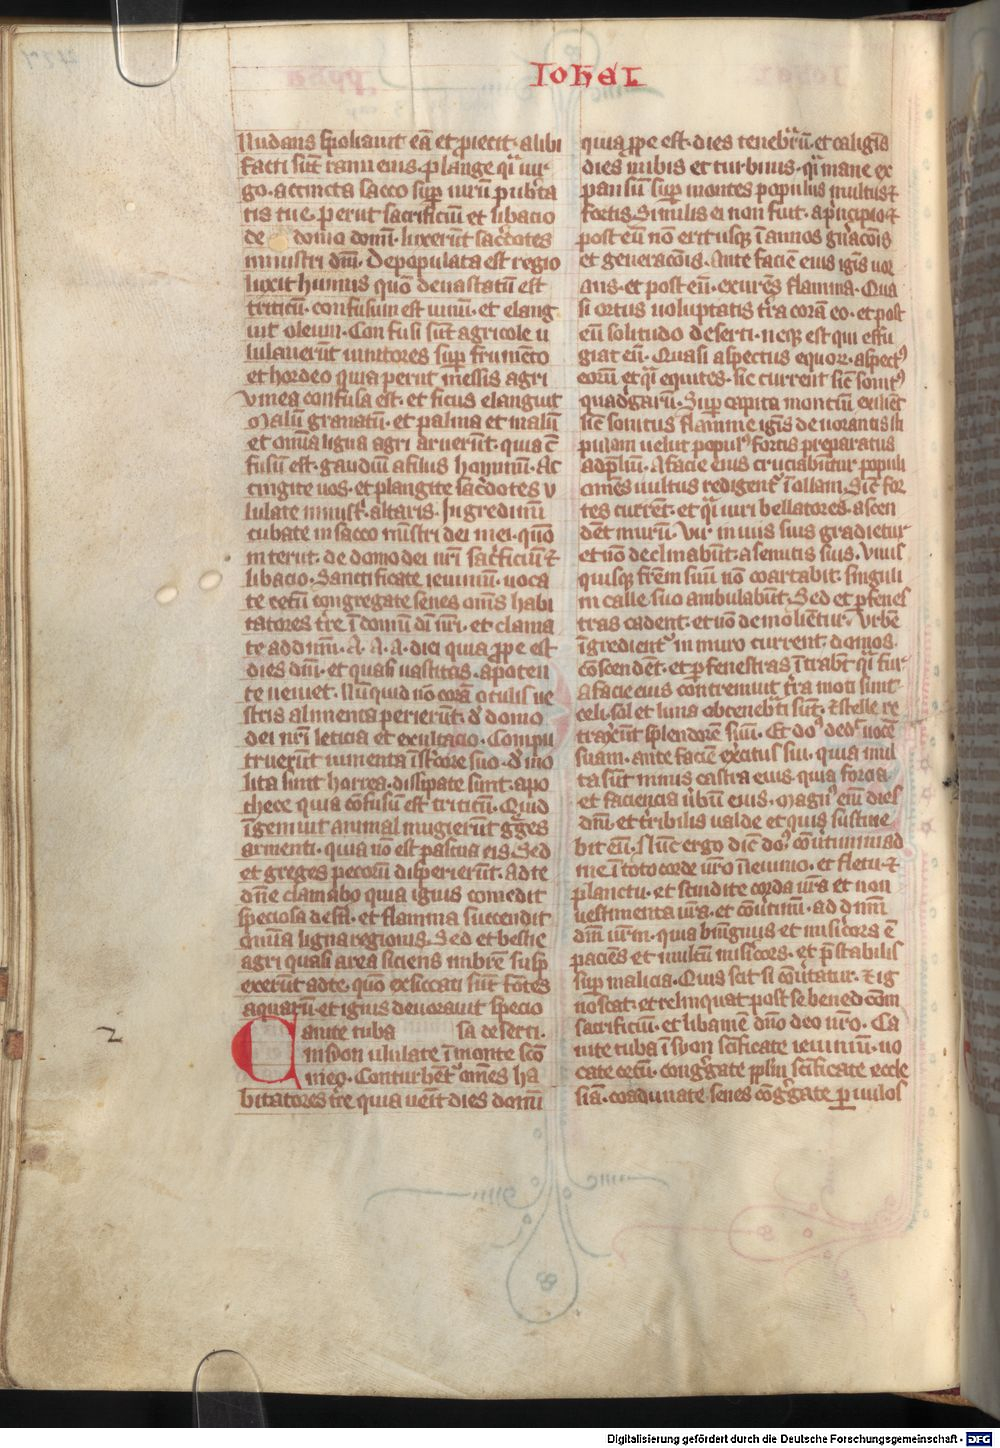 Iohel
Nudans spoliauit eā et proiecit. albi
facti sūt rami eius. plange qͣi uir
go. accincta sacco sup̄ uirū pub̄ta
tis tue. perijt sacrificiū et libacio
de domo domī. luxerūt sac̄dotes
ministri dm̄i. Depopulata est regio
luxit humus quō deuastatū est
triticū. confusum est uinū. et elang
uit oleum. Confusi sūt agricole u
lulauerūt uinitores sup̄ frumēto
et hordeo quia perijt messis agri
vinea confusa est. et ficus elanguit
Malū granatū. et palma et malū
et omīa ligna agri aruerūt. quia cō
fusū est. gaudiū a filijs hominum. Ac
cingite uos. et plangite sac̄dotes v
lulate ministʼ. altaris. Ingredimī
cubate in sacco mīstri dei mei. quō
interijt. de domo dei ur̄i sac̄ficiū ⁊
libacio. Sanctificate ieiuniū. uoca
te cetū congregate senes om̄s habi
tatores tr̄e ī domū dī ur̄i. et clama
te ad dn̄m. A. A. A. diei quia prope est
dies dm̄. et quasi uastitas. a poten
te ueniet. Nūquid nō corā oculis ue
stris alimenta perierūt. dʼ domo
dei nr̄i leticia et exultacio. Compu
truerūt iumenta ī st̄core suo. dʼmo
lita sunt horrea. dissipate sunt. apo
thece quia cōfusū est triticū. Quid
īgemuit animal mugierūt g̊ges
armenti. quia nō est pascua eis. Sed
et greges pecorū disperierūt. Ad te
dn̄e clamabo quia ignis comedit
speciosa des̄ti. et flamma succendit
omīa ligna regionis. Sed et bestie
agri quasi area siciens imbrē susp̄
exerūt ad te. quō exsiccati sūt fōtes
aquarū et ignis deuorauit specio
sa deserti.
Canite tuba
in syon ululate ī monte scō
meo. Conturbētʼ om̄es ha
bitatores tr̄e quia uēit dies domī
2
quia ꝓpe est. dies tenebrͣū. et caligīs
dies nubis et turbinis. qͣi mane ex
pansū sup̄ montes populus multus ⁊
fortis. Similis ei non fuit. a pͥncipio ⁊
post eū nō erit usqꝫ ī annos gn̄acōis
et generacōis. Ante faciē eius igīs uor
ans. et post eū. exurēs flamma. Qua
si ortus uoluptatis tr̄a corā eo. et post
eū solitudo deserti. neqꝫ est qui effu
giat eū. Quasi aspectus equor. aspectꝰ
eorū. et qͣi equites. sic current sic̄ sonitꝰ
quadͥgarū. Sup̄ capita monciū exiliēt
sic̄ sonitus flamme igīs deuorantis sti
pulam uelut populꝰ fortis preparatus
ad pͤliū. A facie eius cruciabūtur populi
om̄es uultus redigentʼ ī ollam. Sic̄ for
tes current. et qͣi uiri bellatores. ascen
dēt murū. Vir in uijs suis gradietur
et nō declinabūt. a semitis suis. Vnus
quisqꝫ fr̄em suū nō coartabit. singuli
in calle suo ambulabūt. Sed et ꝑ fenes
tras cadent. et nō demolientur. Vrbē
īgredientʼ in muro current. domos.
cōscendēt. et ꝑ fenestras ītrabt qͣi fur
A facie eius contremuit tr̄a moti sunt
celi. sol et luna obtenebͣti sūt. ⁊ stelle re
traxerūt splendorē suum. Et doꝰ dedͥ uocē
suam. ante faciē exc̄itus sui. quia mul
ta sūt nimis castra eius. quia forcia.
et faciencia ūbū eius. Magnꝰ eī dies
dm̄i. et tr̄ribilis ualde et quis sustine
bit eū. Nūc ergo dic̄ doꝰ cōūtimini ad
me ī toto corde ur̄o ī ieiunio. et fletu ⁊
planctu. et scindite corda ur̄a et non
uestimenta ur̄a. et cōūtimī. ad dn̄m
dm̄ ur̄m. quia benignus et misͥcors ē
paciēs et multū misͥcors. et p̄stabilis
sup̄ malicia. Quis scit si cōūtatur. ⁊ ig
noscat. et relinquat post se bened̄cōm
sacrificiū. et libamē dn̄o deo ur̄o. Ca
nite tuba ī syon sc̄ificate ieiuniū. uo
cate cetū. congͤgate ppl̄m sc̄ificate eccle
siā. coadunate senes cōgͤgate ꝑuulos
Digitalisierung gefördert durch die Deutsche Forschungsgemeinschaft - DFG